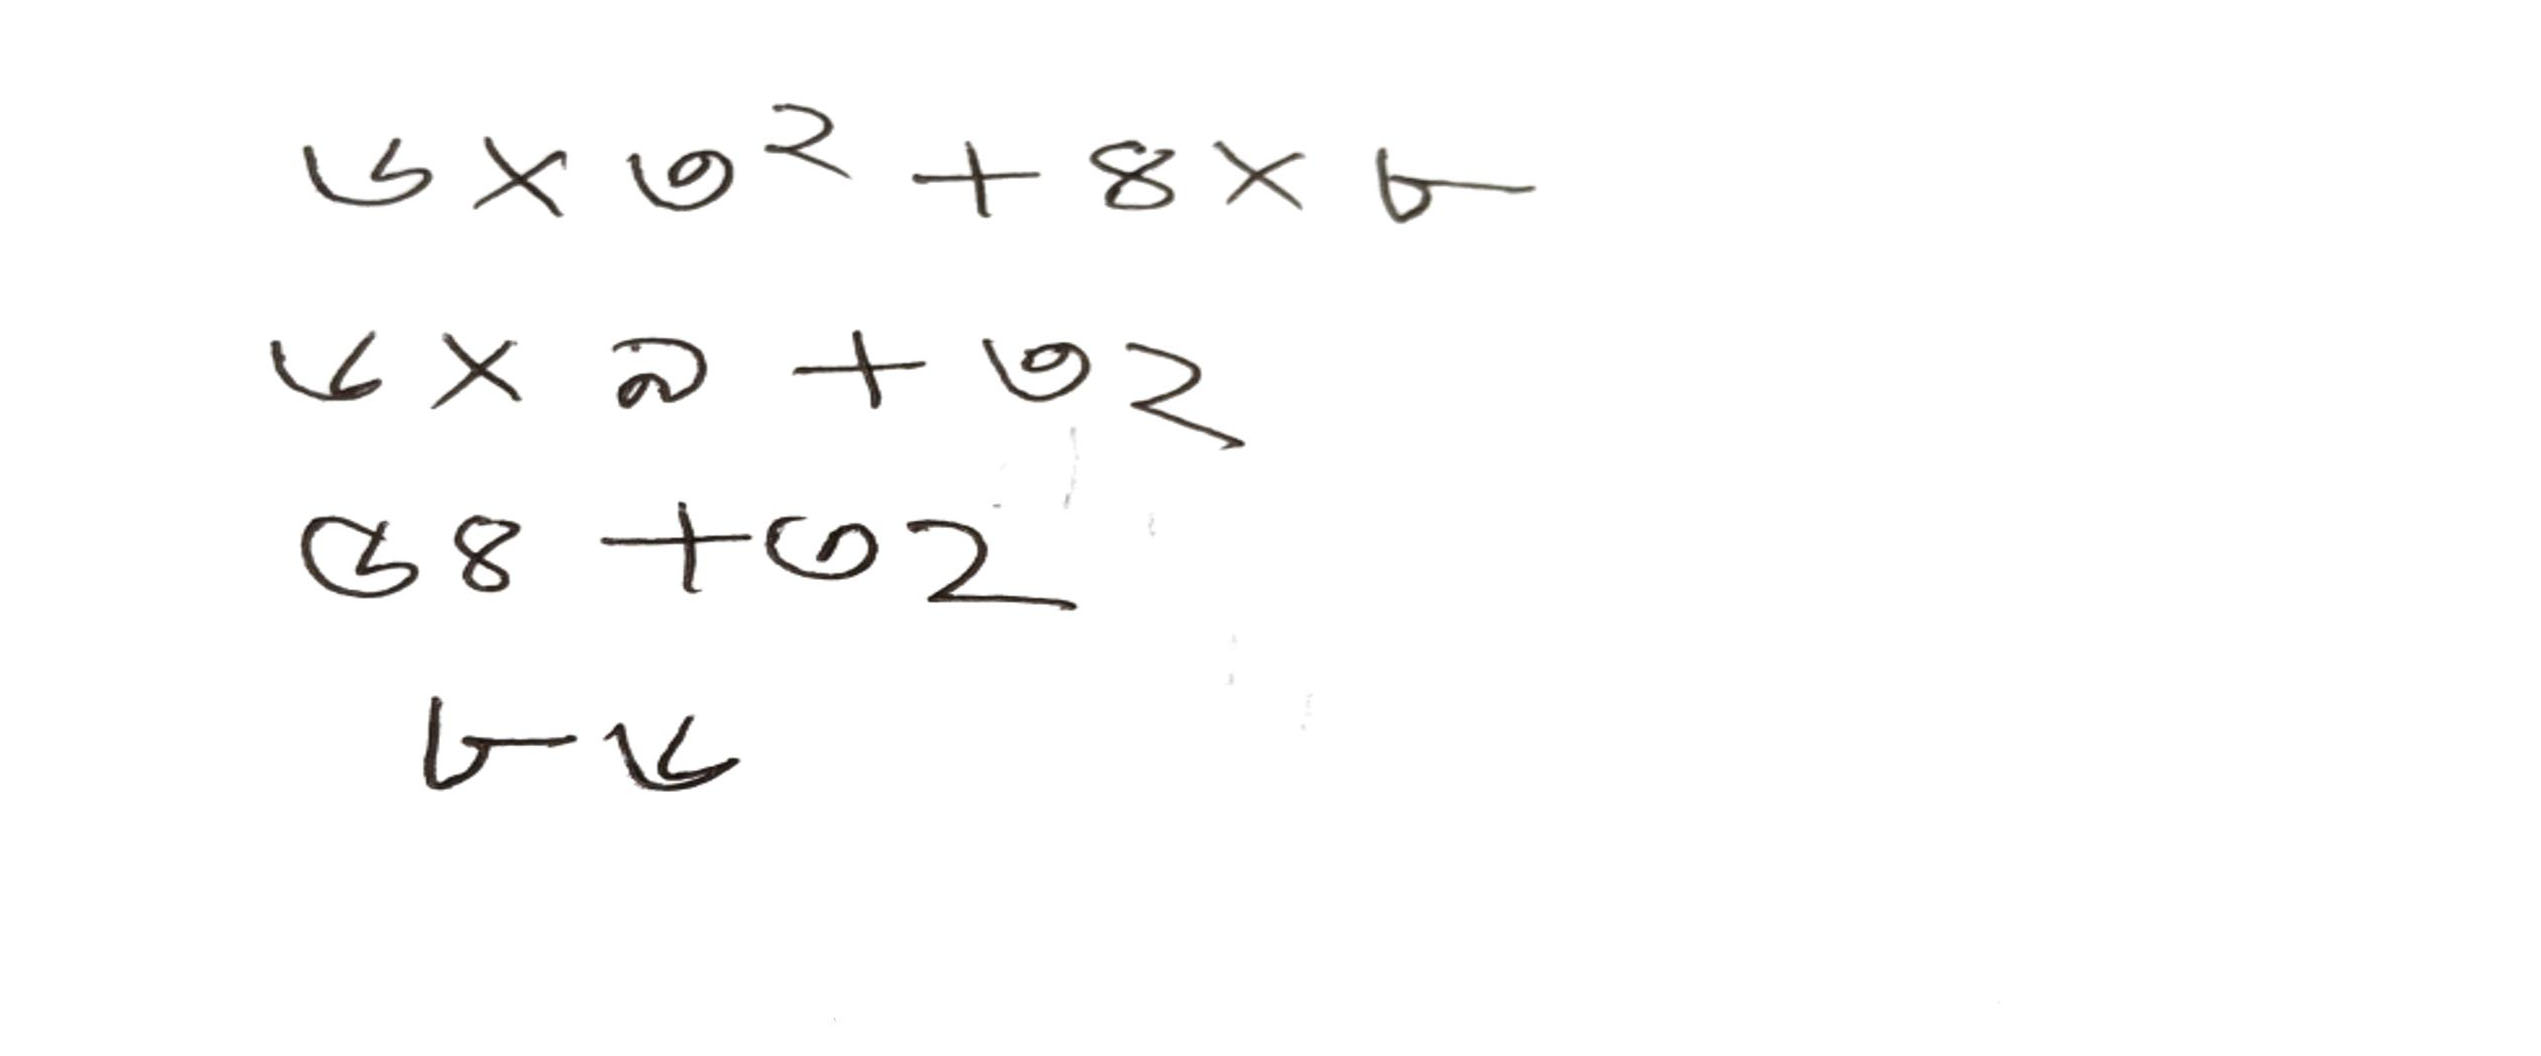 ৬ × ৩² + ৪ × ৮
৬ × ৯ + ৩২
৫৪ + ৩২
৮৬